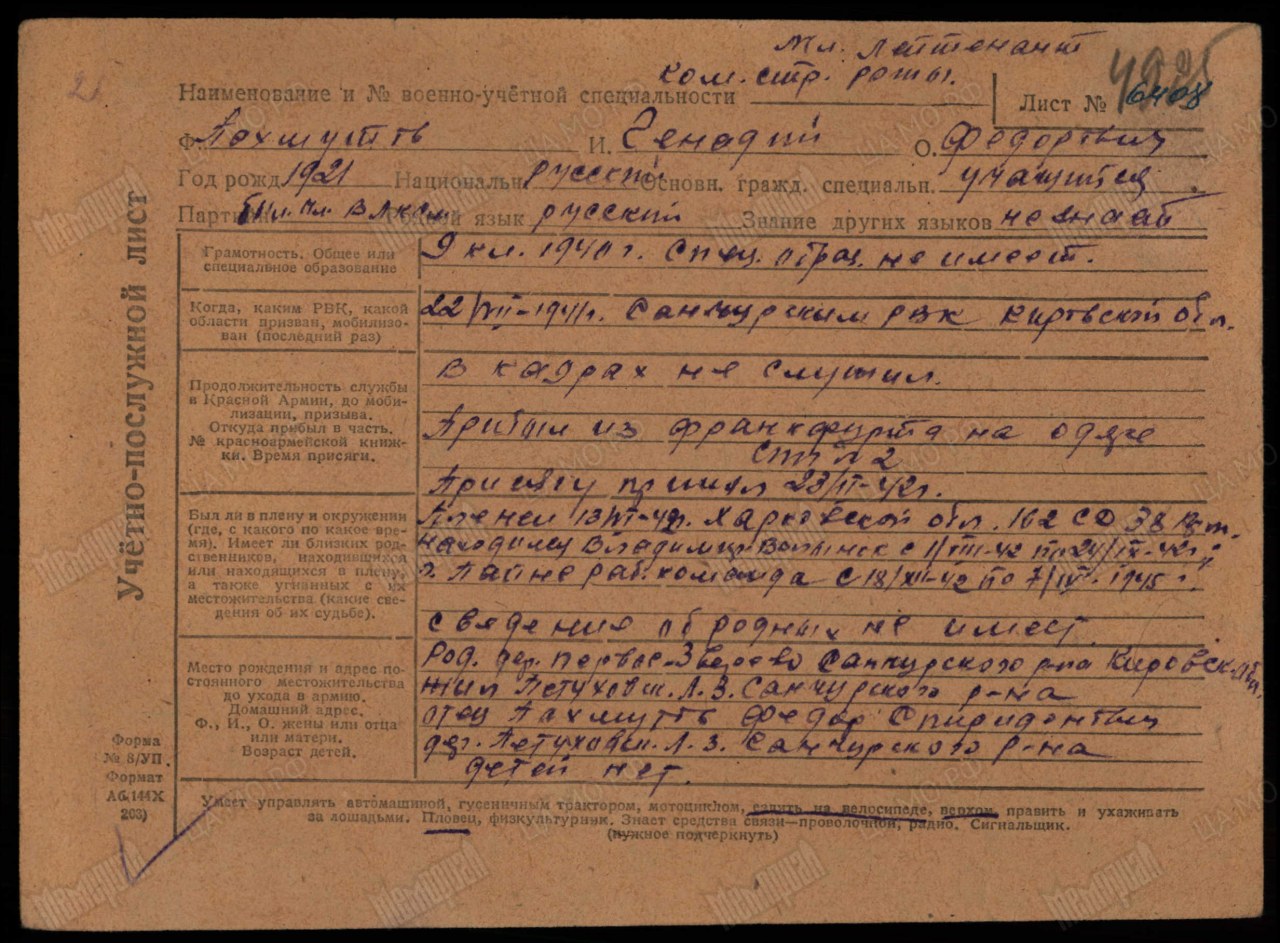 мл. лейтенант
ком. стр. роты.
Наименование и № военно-учётной специальности
Лист № 6408
Ф. Пахмутов И. Генадий О. Федорович
Год рожд. 1921 Национальн. русский Основн. гражд. специальн. учащийся
Парт был. чл. ВЛКСМ Родной язык русский Знание других языков не знает
Учётно-послужной лист
Грамотность. Общее или
специальное образование
9 кл. 1940 г. Спец. образ. не имеет.
Когда, каким РВК, какой
области призван, мобилизо-
ван (последний раз)
22/VII-1941 г. Санчурским РВК Кировской обл.
Продолжительность службы
в Красной Армии, до моби-
лизации, призыва.
Откуда прибыл в часть.
№ красноармейской книж-
ки. Время присяги.
В кадрах не служил.
Прибыл из франкфурта на одере
СПП № 2
Присягу принял 23/II-42 г.
Был ли в плену и окружении
(где, с какого по какое вре-
мя). Имеет ли близких род-
ственников, находившихся
или находящихся в плену,
а также угнанных с их
местожительства (какие све-
дения об их судьбе).
Пленен 13/VI-42 г. Харковской обл. 162 СД 38
находился Владимир Волынск с 1/VIII-42 по 24/IX-42 г.
г. Пайне раб. команда с 18/XII-42 по 7/IV-1945 г.
сведения о родных не имеет.
Место рождения и адрес по-
стоянного местожительства
до ухода в армию.
Домашний адрес.
Ф., И., О. жены или отца
или матери.
Возраст детей.
Род. дер. Первое-Зверево Санчурского р-на Кировск. обл.
жил Петуховск. Л. З. Санчурского р-на
отец Пахмутов Федор Спиридонович
дер. Петуховск. Л. З. Санчурского р-на
детей нет.
Форма
№ 8/УП.
Формат
А6(144Х
203)
Умеет управлять автомашиной, гусеничным трактором, мотоциклом, ездить на велосипеде, верхом, править и ухаживать
за лошадьми. Пловец, физкультурник. Знает средства связи—проволочной, радио. Сигнальщик.
(нужное подчеркнуть)